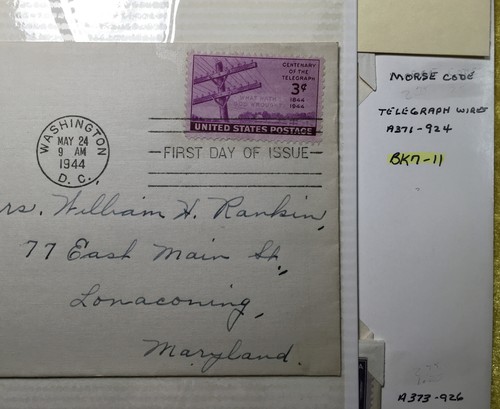 CENTENARY
OF THE
TELEGRAPH
3¢
WHAT HATH
GOD WROUGHT
1844
1944
UNITED STATES POSTAGE
WASHINGTON
MAY 24
9 AM
1944
D. C.
FIRST DAY OF ISSUE
rs. William H. Rankin,
77 East Main St.,
Lonaconing,
Maryland.
MORSE CODE
TELEGRAPH WIRES
A371-924
BK7-11
A373-926